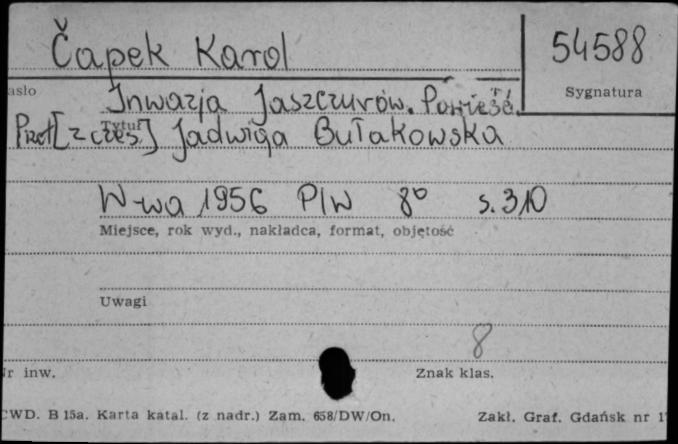 Čapek Karol
54588
asło
Sygnatura
Inwazja Jaszczurów. Powieść.
Tytuł
Przeł[z czes.] Jadwiga Bułakowska
W-wa 1956 PIW 8° s. 310
Miejsce, rok wyd., nakładca, format, objętość
Uwagi
8
Nr inw.
Znak klas.
CWD. B 15a. Karta katal. (z nadr.) Zam. 658/DW/On.
Zakł. Graf. Gdańsk nr 1